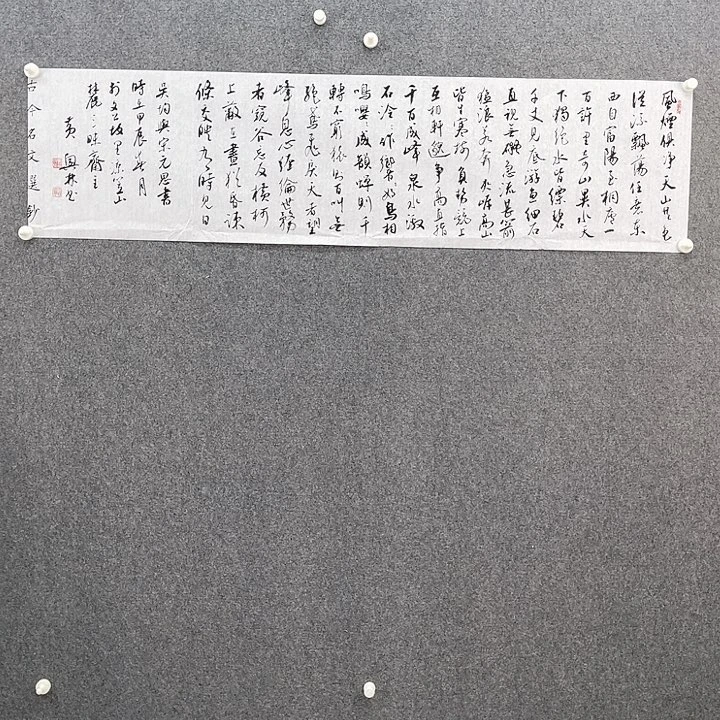 風煙俱净天山共色
從流飄蕩任意東
西自富陽至桐廬一
百許里奇山異水天
下獨絕水皆縹碧
千丈見底游魚細石
直視無礙急流甚箭
猛浪若奔夾岸高山
皆生寒樹負勢競上
互相軒邈爭高直指
千百成峰泉水激
石泠泠作響好鳥相
鳴嚶嚶成韻蟬則千
轉不窮猿則百叫無
絕鳶飛戾天者望
峰息心經綸世務
者窺谷忘反橫柯
上蔽在晝猶昏疎
條交映有時見日
吳均與宋元思書
時在甲辰 月
於 坡里 山
麓 齋主
黄恩林书
古今名文選鈔